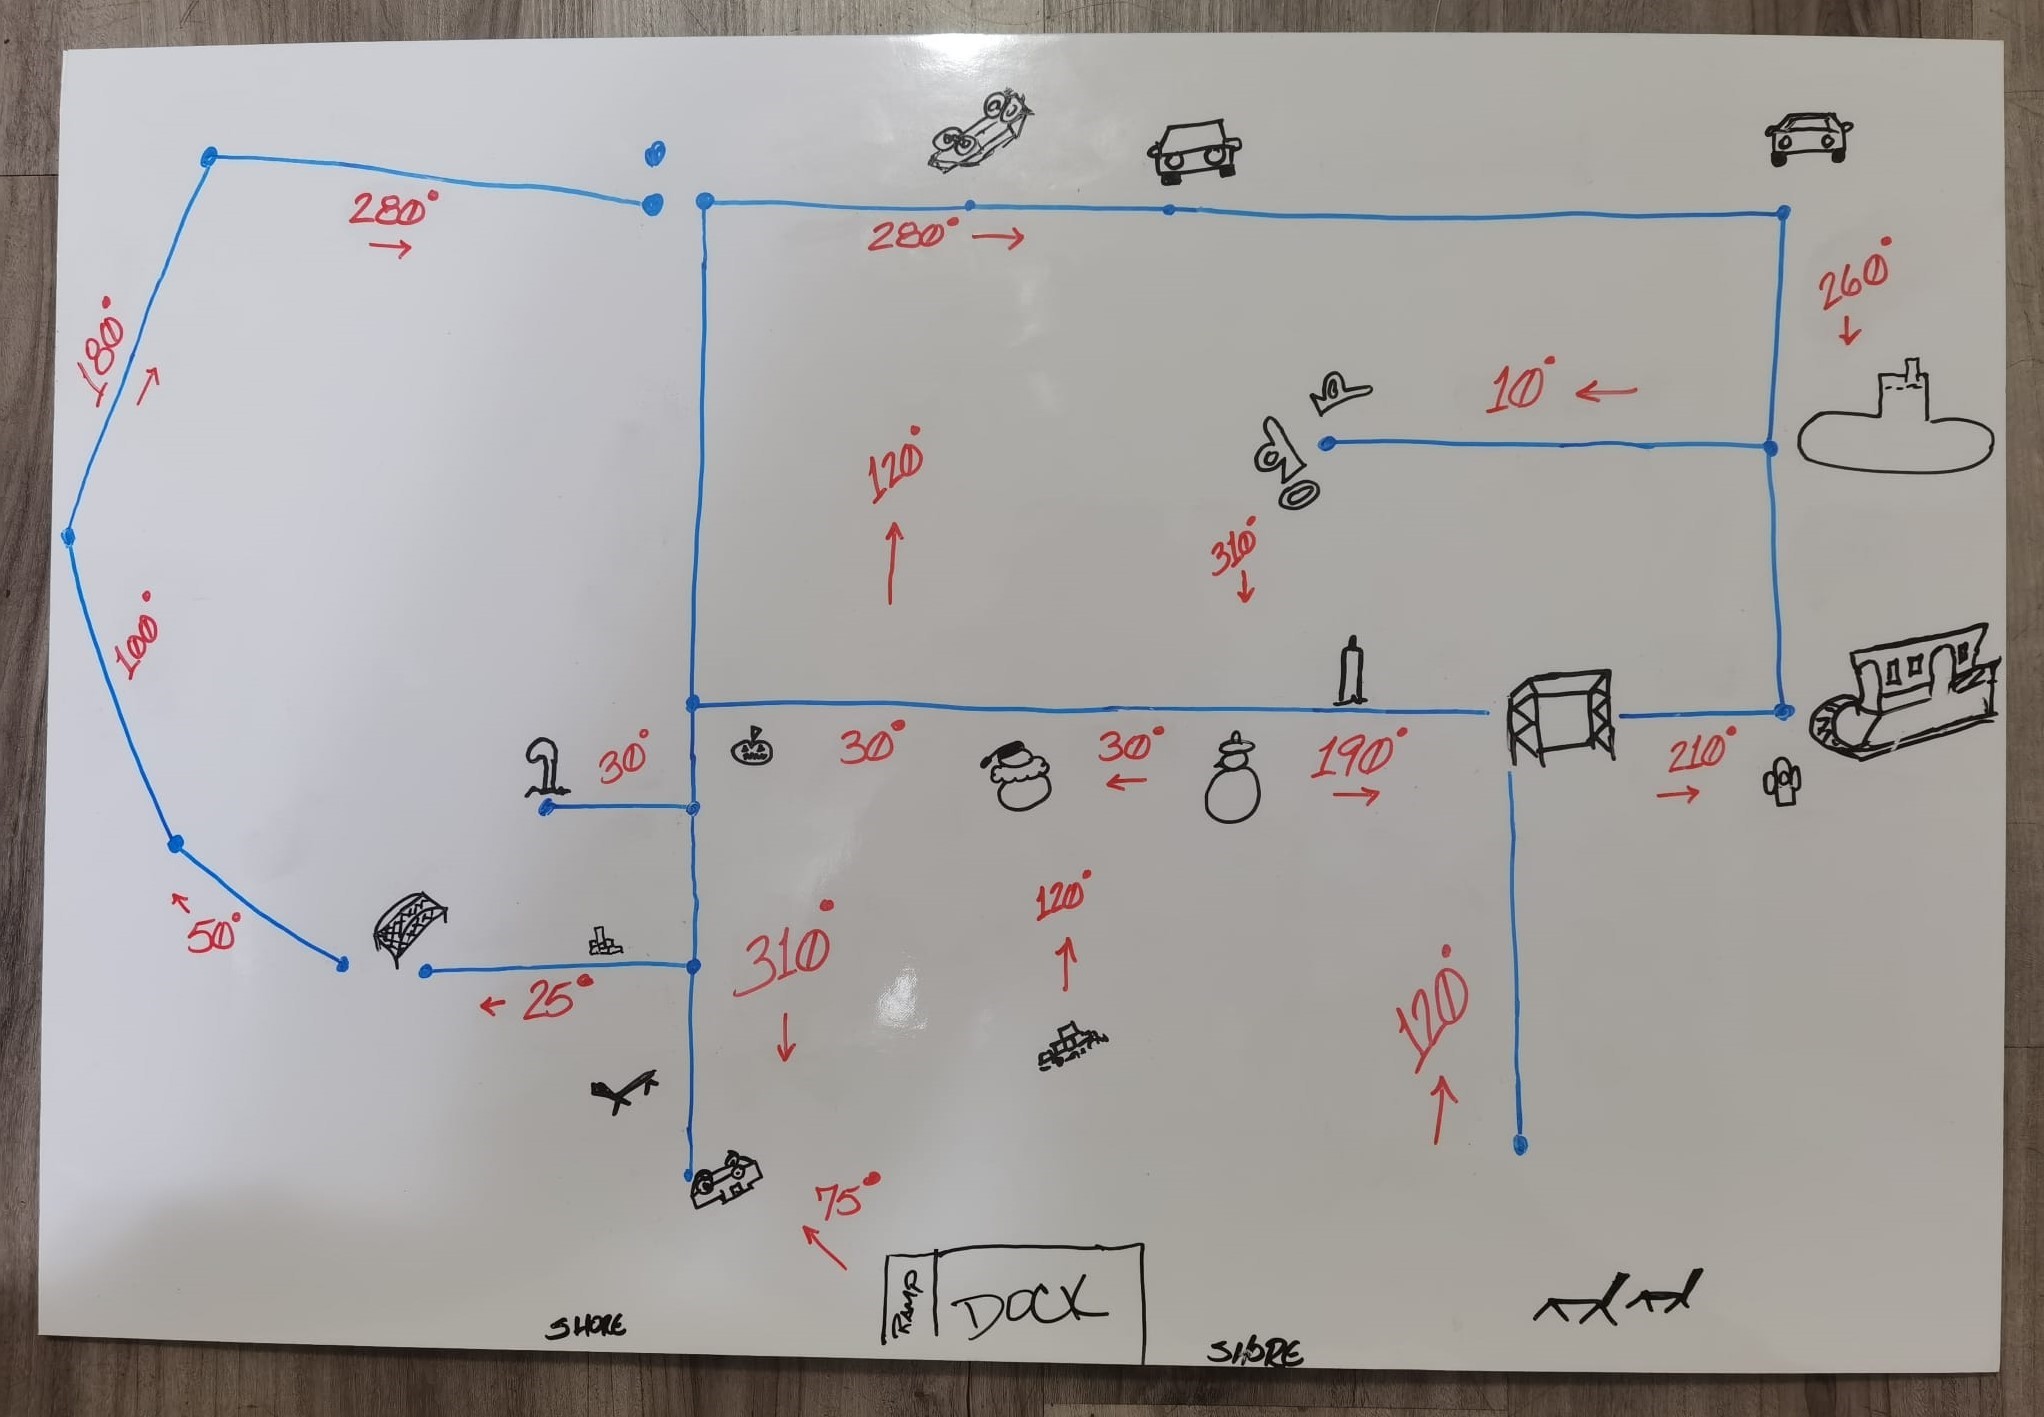 280°
280°
260°
180°
10°
120°
310°
100°
30°
30°
30°
190°
210°
120°
50°
310°
25°
120°
75°
RAMP
DOCK
SHORE
SHORE